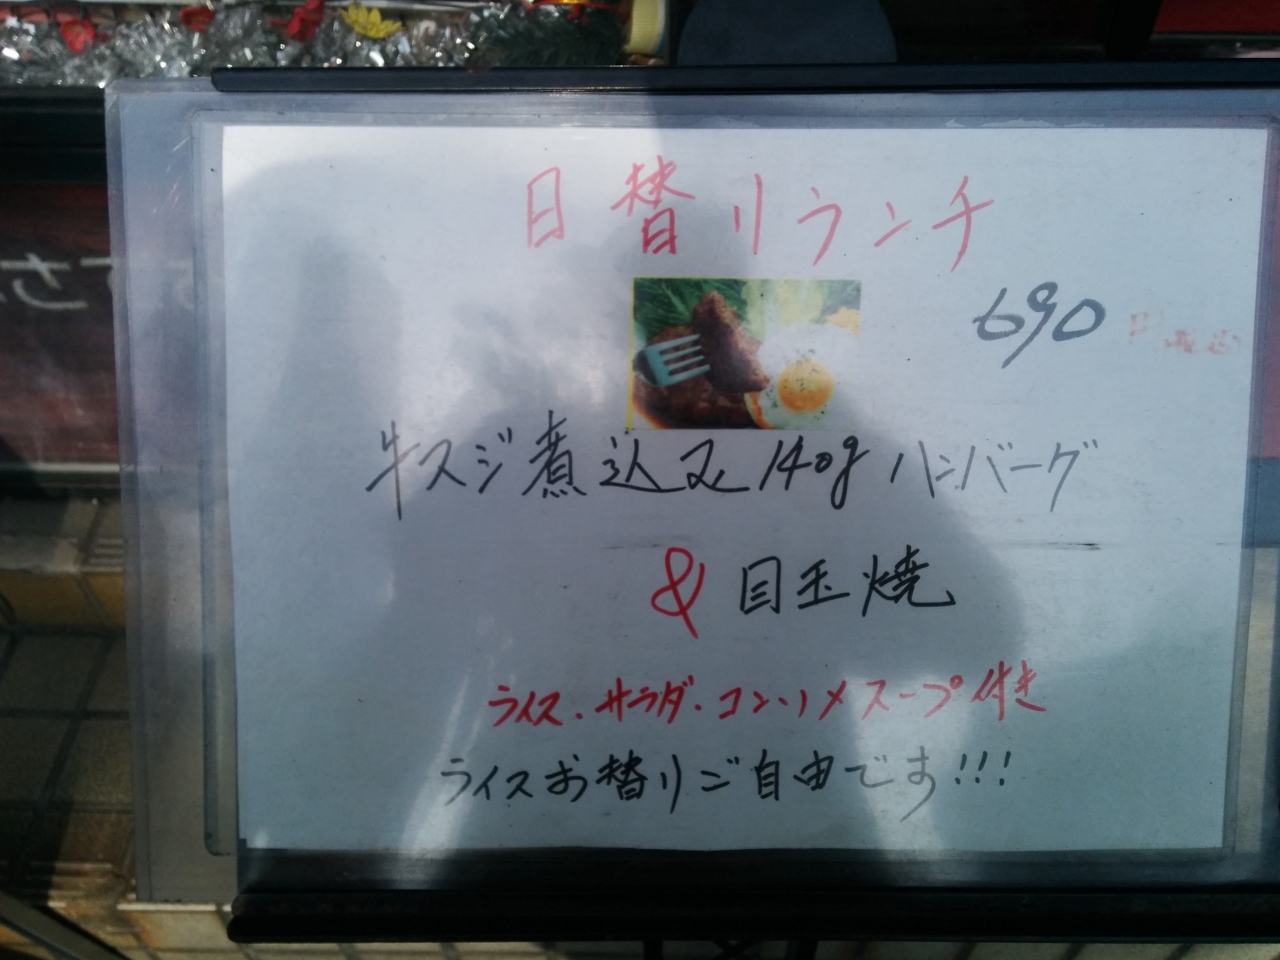 日替りランチ
690
牛スジ煮込み140gハンバーグ
& 目玉焼
ライス・サラダ・コンソメスープ付き
ライスお替りご自由です!!!